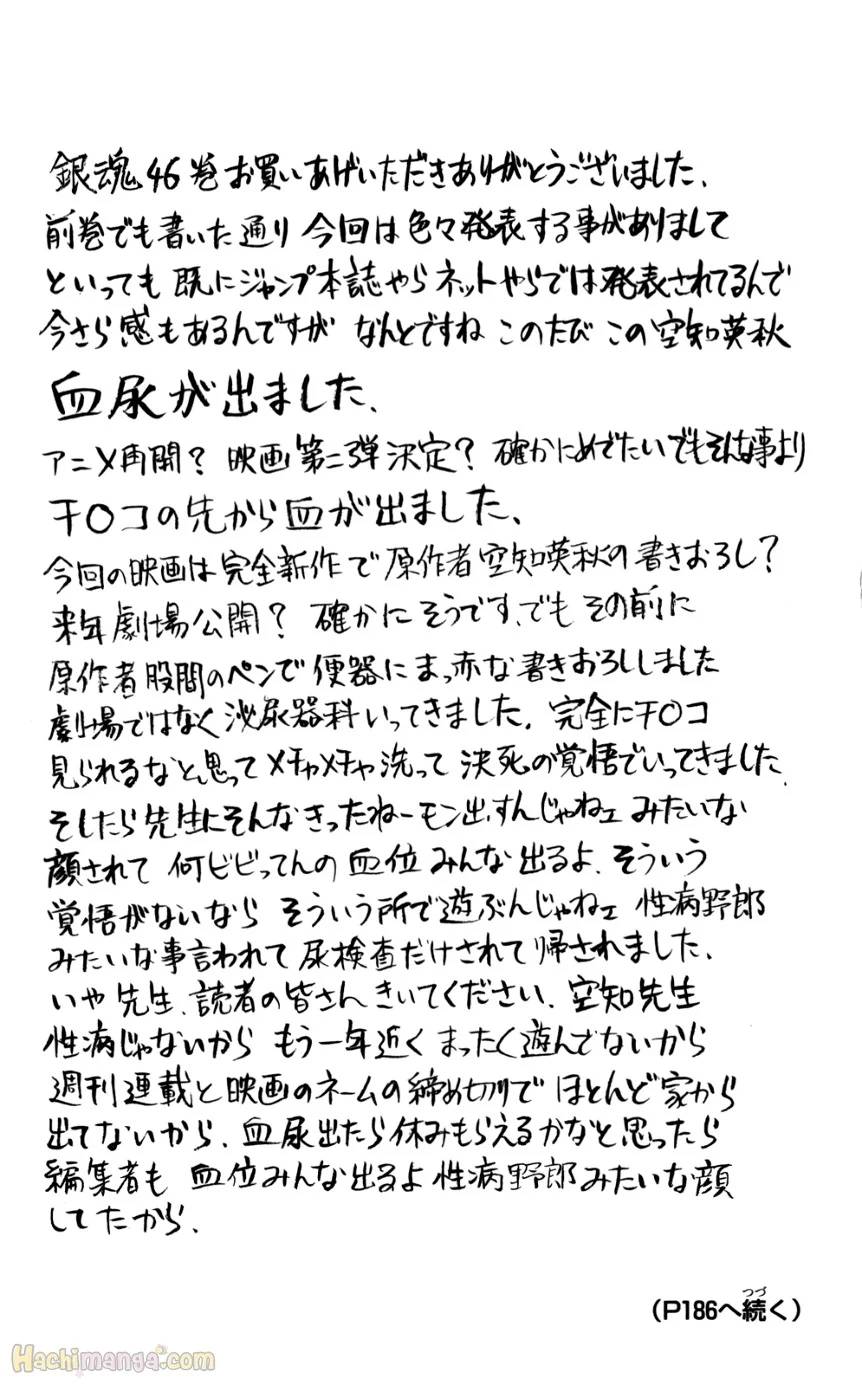 銀魂46巻お買いあげいただきありがとうございました、
前巻でも書いた通り 今回は色々発表する事がありまして
といっても 既にジャンプ本誌やら ネットやらでは発表されてるんで
今さら感もあるんですが なんとですね このたび この空知英秋
血尿が出ました、
アニメ再開? 映画第二弾決定? 確かにめでたいでもそんな事より
チ〇コの先から血が出ました、
今回の映画は完全新作で原作者空知英秋の書きおろし?
来年劇場公開? 確かにそうです、でも その前に
原作者股間のペンで便器にまっ赤な書きおろししました
劇場ではなく泌尿器科いってきました、完全にチ〇コ
見られるなと思ってメチャメチャ洗って 決死の覚悟でいってきました、
そしたら先生にそんなきったねーモン出すんじゃねェ みたいな
顔されて 何ビビってんの 血位みんな出るよ、そういう
覚悟がないなら そういう所で遊ぶんじゃねェ 性病野郎
みたいな事言われて 尿検査だけされて帰されました、
いや先生、読者の皆さんきいてください、空知先生
性病じゃないから もう一年近く まったく遊んでないから
週刊連載と映画のネームの締め切りで ほとんど家から
出てないから、血尿出たら休みもらえるかなと思ったら
編集者も 血位みんな出るよ性病野郎みたいな顔
してたから、
(P186へ続く)
つづ
Hachimanga.com